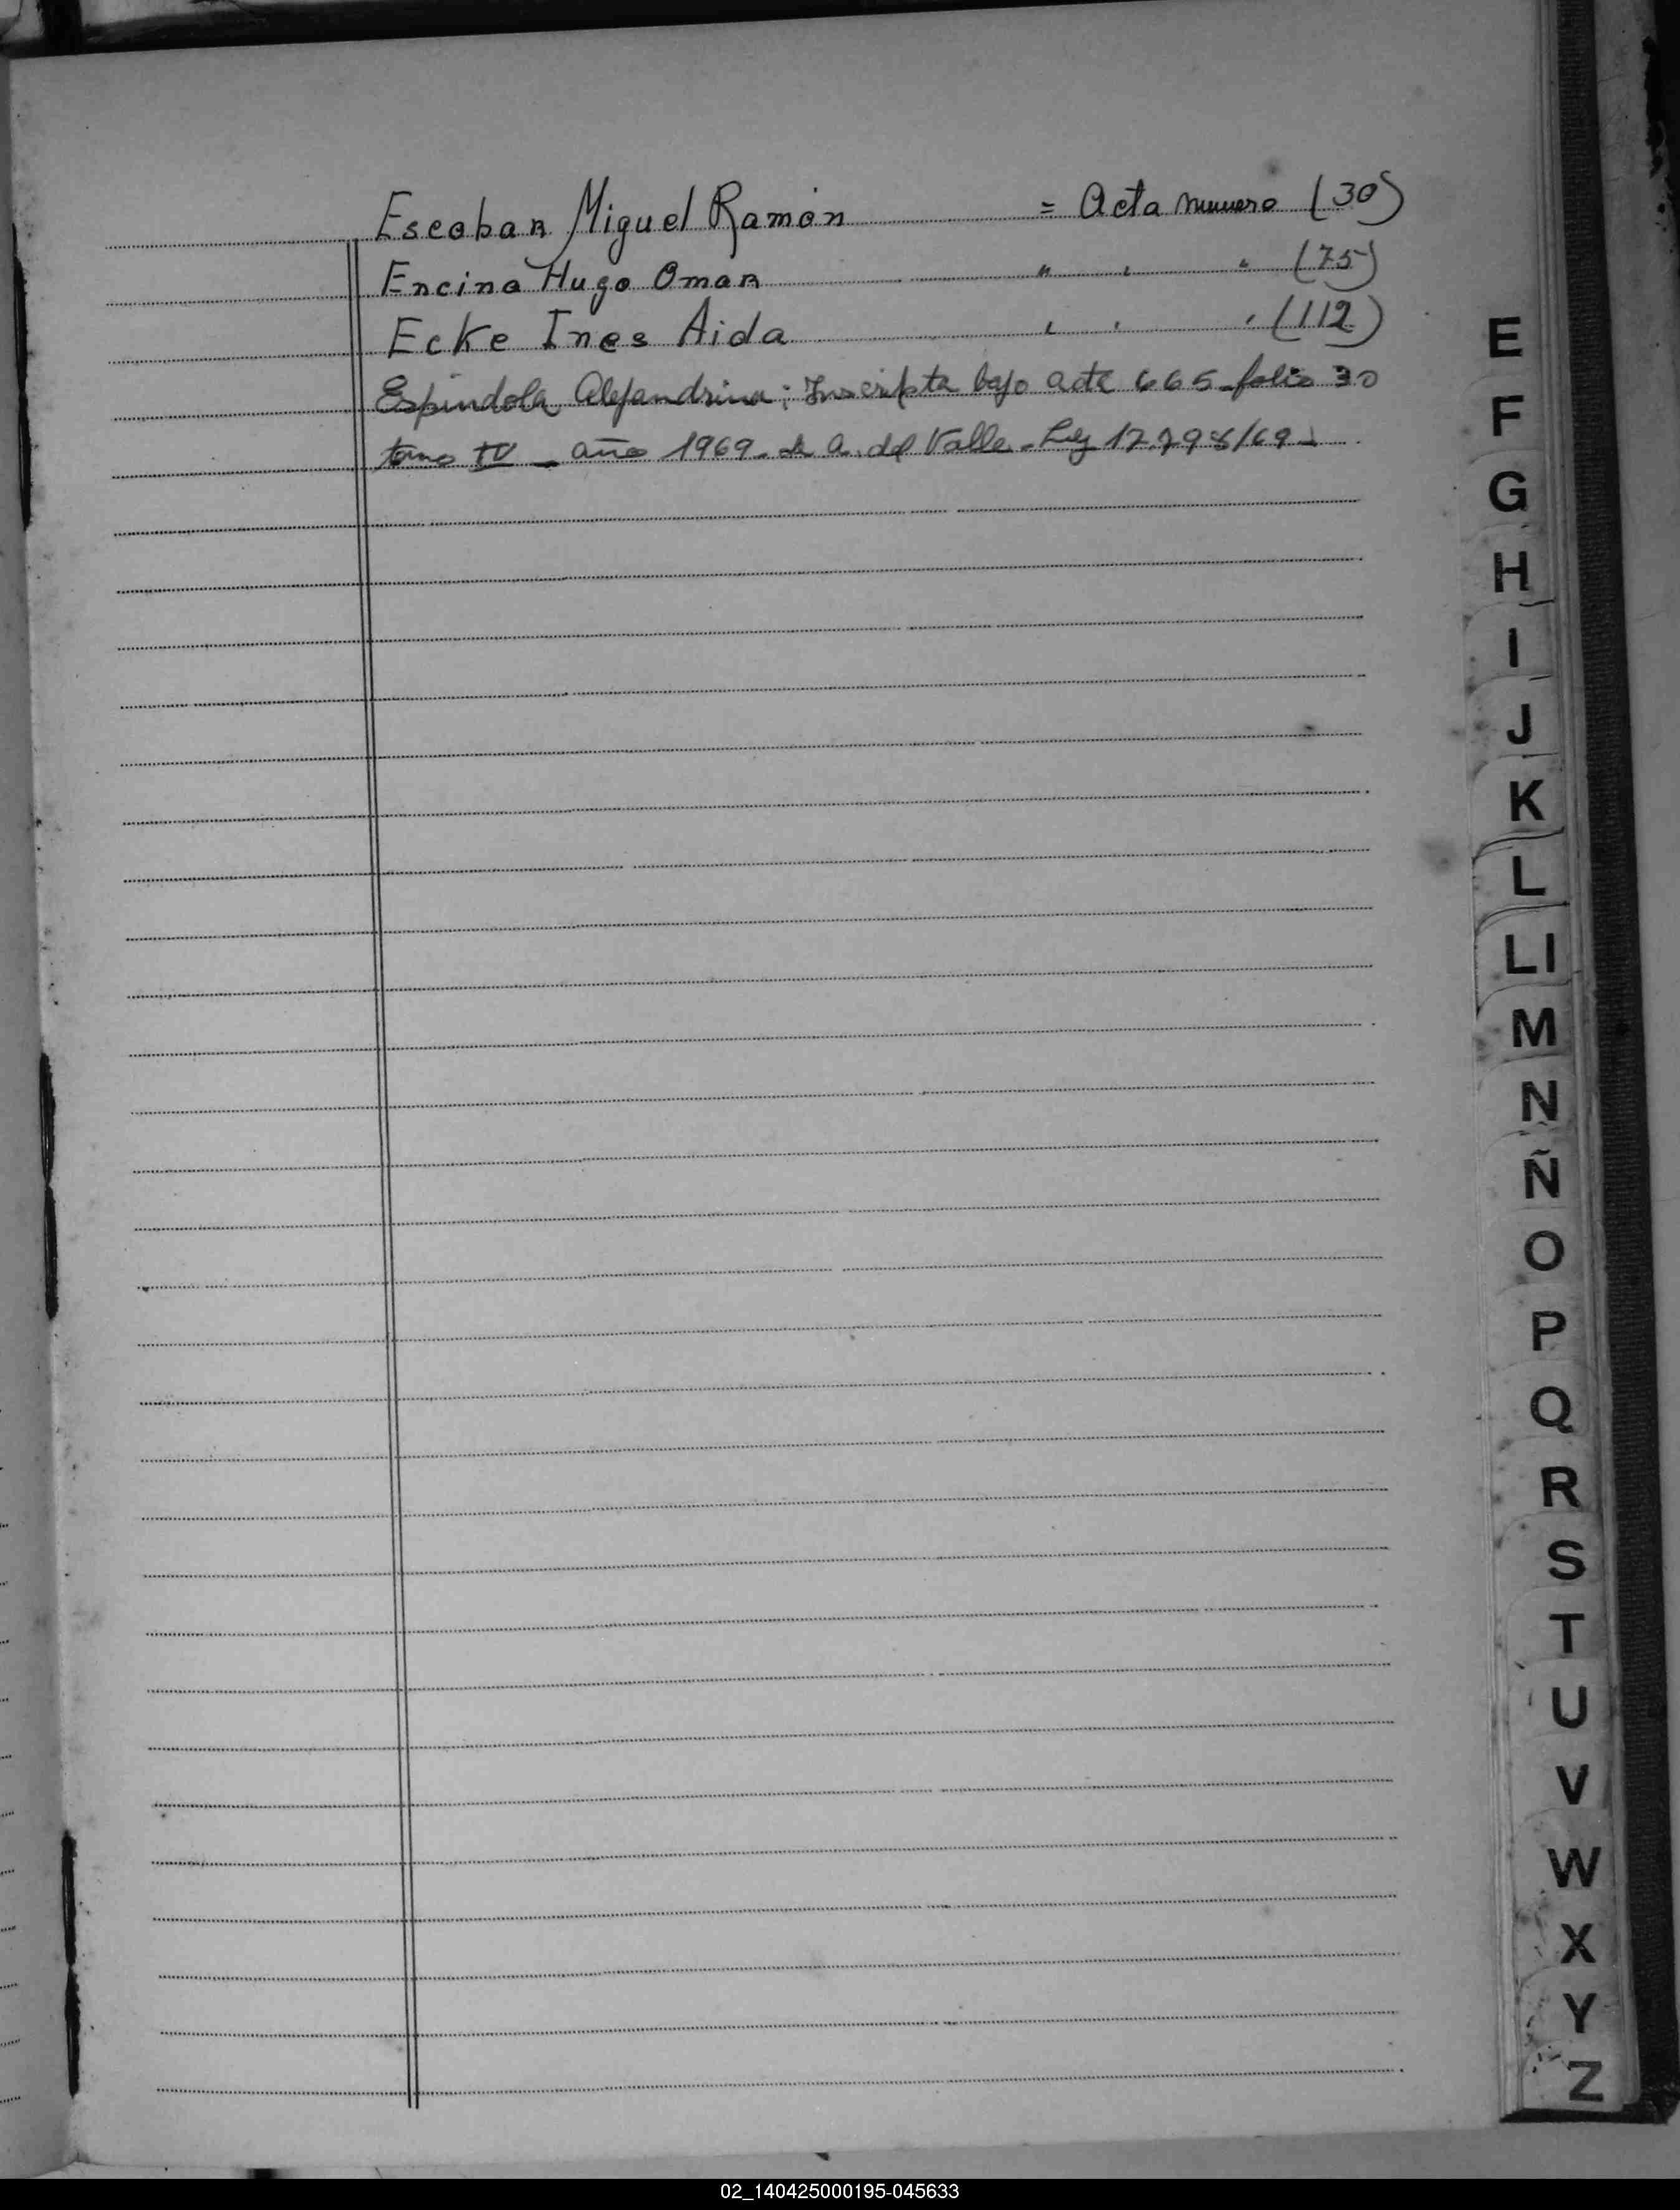 Escobar Miguel Ramón = Acta numero (30)
Encina Hugo Omar " " " (75)
Ecke Ines Aida " " " (112)
Espindola Alejandrina; Inscripta bajo acta 665 folio 30
tomo IV - año 1969 - de a. del Valle - Ley 17.798/69 -
E
F
G
H
I
J
K
L
Ll
M
N
Ñ
O
P
Q
R
S
T
U
V
W
X
Y
Z
02_140425000195-045633